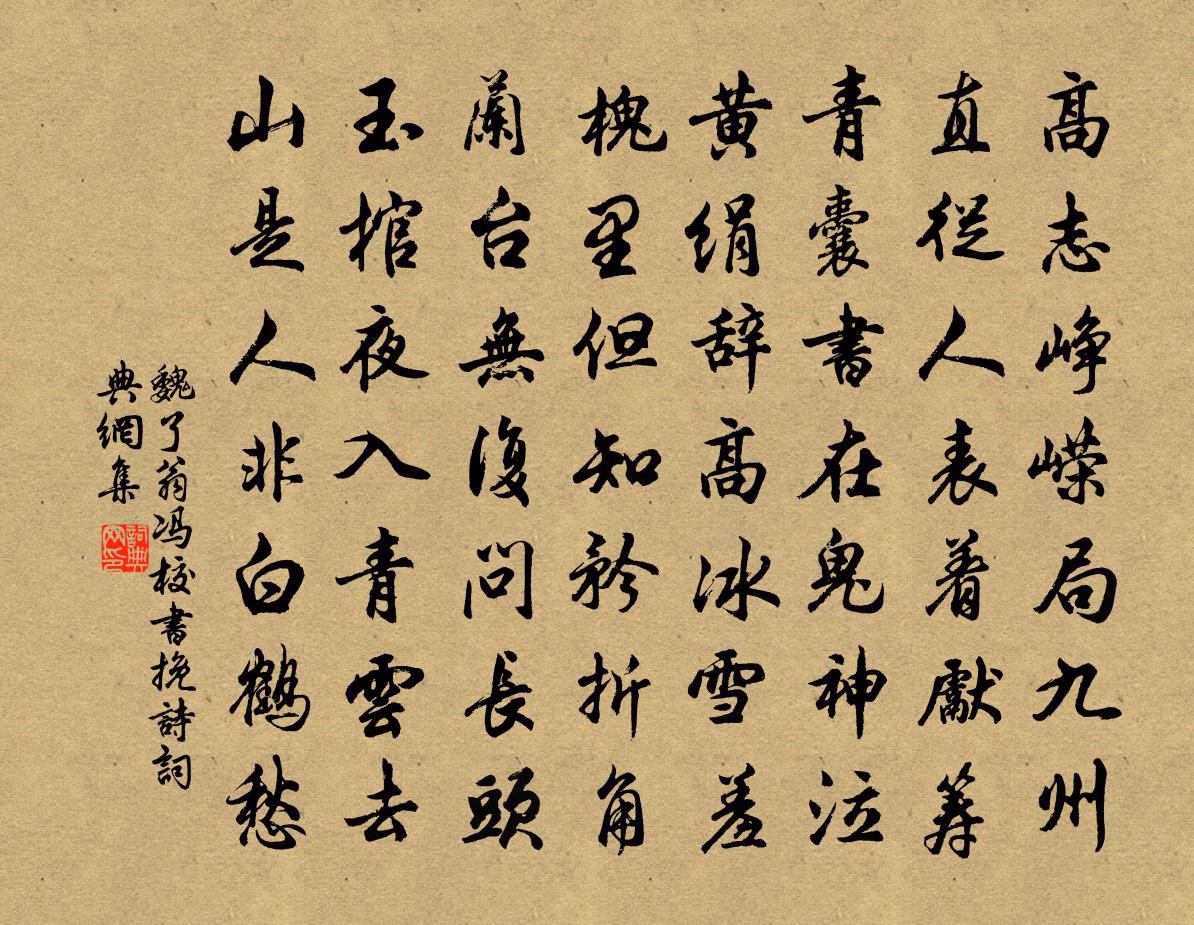 高志峥嵘局九州
直從人表着獻筹
青囊書在鬼神泣
黄绢辞高冰雪羞
槐里但知矜折角
蘭台無復問長頭
玉棺夜入青雲去
山是人非白鶴愁
魏了翁冯校書挽詩詞
典網集
詞典
网印